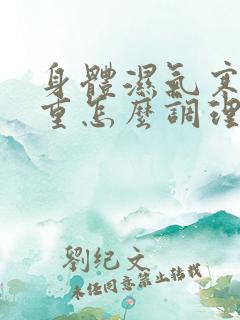 身體濕氣寒
重怎麼調理
劉紀文
未经同意禁止转载